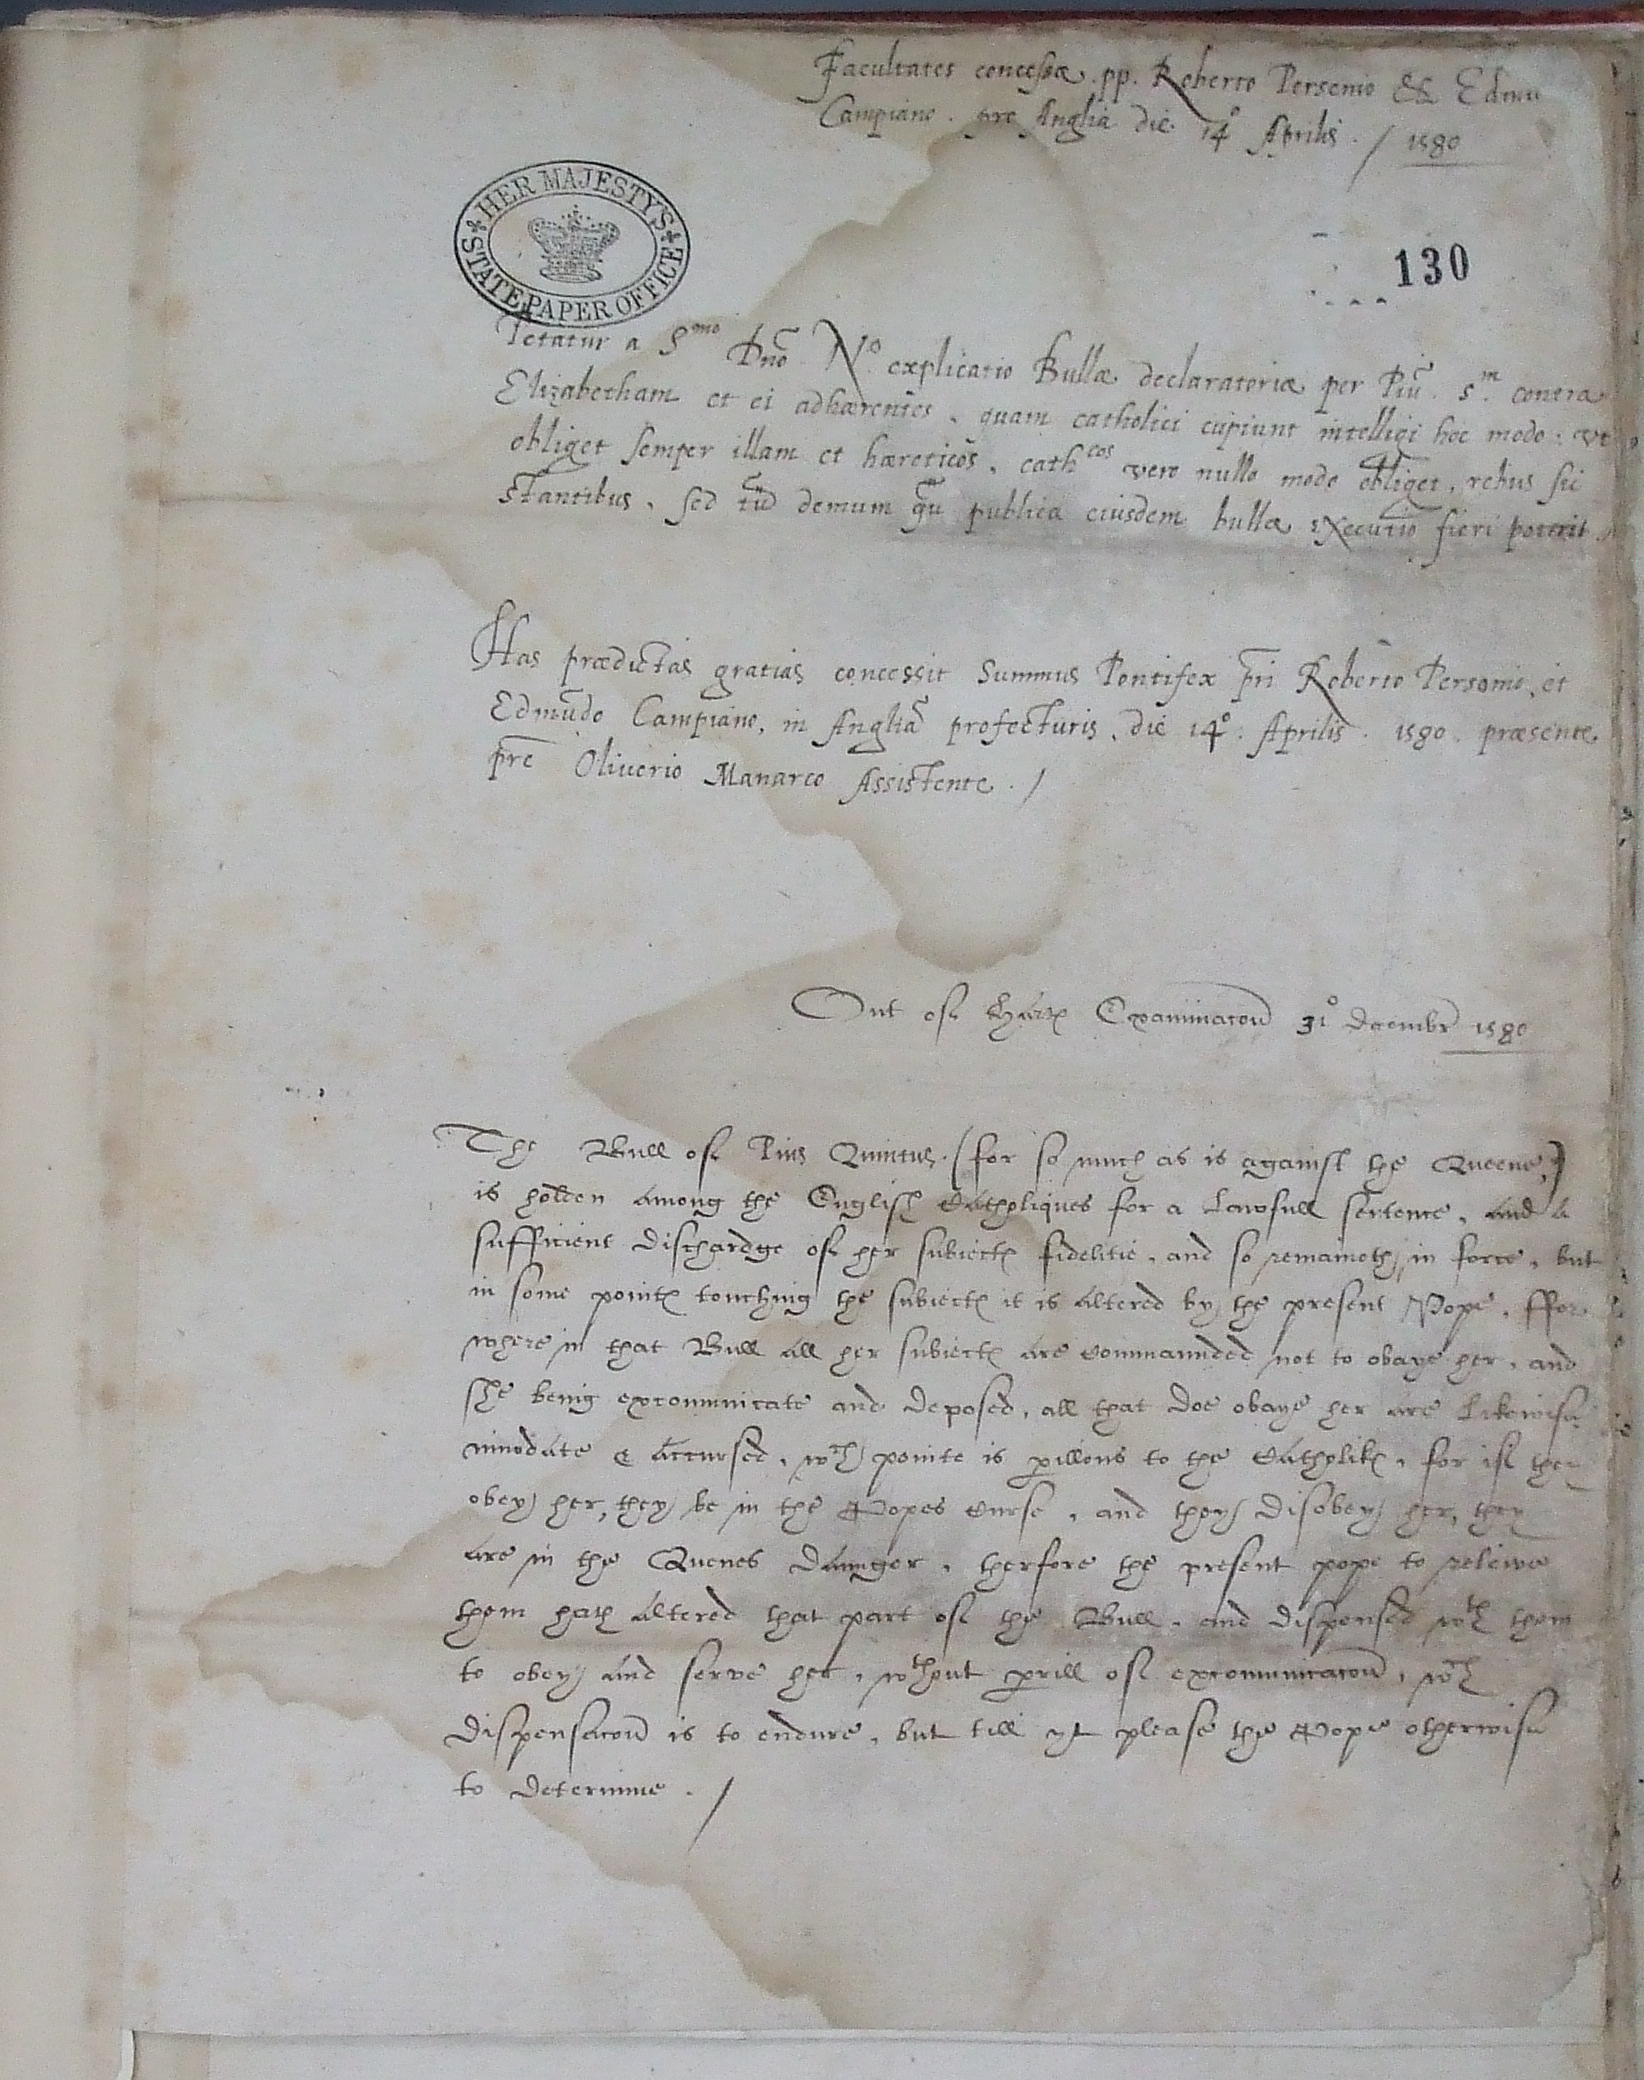 Facultates concessæ .pp. Roberto Personio & Edmu
Campiano . pro Anglia die 14º Aprilis . / 1580
HER MAJESTY'S STATE PAPER OFFICE
130
Petatur a Smo Dño Nº explicatio Bullæ declaratoriæ per Piũ . 5m. contra
Elizabetham et ei adhærentes , quam catholici cupiunt intelligi hoc modo : vt
obliget semper illam et hæreticos , cathcos vero nullo modo obliget , rebus sic
stantibus , sed tũ demum qũ publica eiusdem bullæ executio fieri poterit
Has prædictas gratias concessit Summus Pontifex pri Roberto Personio, et
Edmũdo Campiano, in Angliã profecturis , die 14º. Aprilis . 1580 . præsente
pre Oliuerio Manarco Assistente . /
Out of Hartes Examinacoñ 31º decembr 1580
The Bull of Pius Quintus . (for so much as is against the Queene,)
is holden among the English Catholiques for a Lawfull sentence , and a
sufficient dischardge of her subiectes fidelitie , and so remaineth in force , but
in some pointes touching the subiectes it is altered by the present Pope . ffor
where in that Bull all her subiectes are commaunded not to obaye her , and
she being excommunicate and deposed , all that doe obaye her are likewise
innodate & accursed , wch pointe is perillous to the Catholikes , for if they
obey her, they be in the Popes curse , and they disobey her, they
are in the Quenes daunger , therfore the present pope to relieve
them hath altered that part of the Bull , and dispensed wth them
to obey and serve her , wthout perill of excommunicacoñ , wch
dispensacoñ is to endure , but till yt please the Pope otherwise
to determine . /